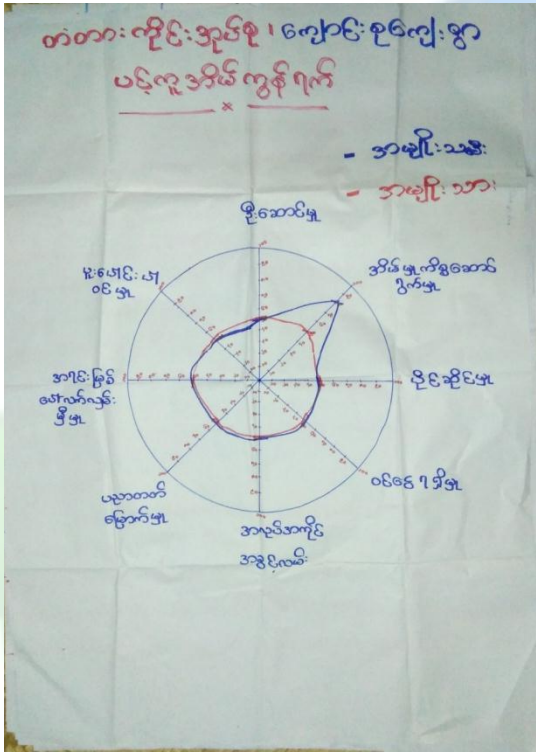 တံတားကိုင်းအုပ်စု၊ ကျောင်းစုကျေးရွာ
ပင့်ကူအိမ်ကွန်ရက်
x
- အမျိုးသမီး
- အမျိုးသား
ဦးဆောင်မှု
အိမ်မှုကိစ္စဆောင်
ရွက်မှု
ပိုင်ဆိုင်မှု
ဝင်ငွေရရှိမှု
အလုပ်အကိုင်
အခွင့်လမ်း
ပညာတတ်
မြောက်မှု
အရင်းမြစ်
ပေါ်လက်လှမ်း
မှီမှု
ပူးပေါင်းပါ
ဝင်မှု